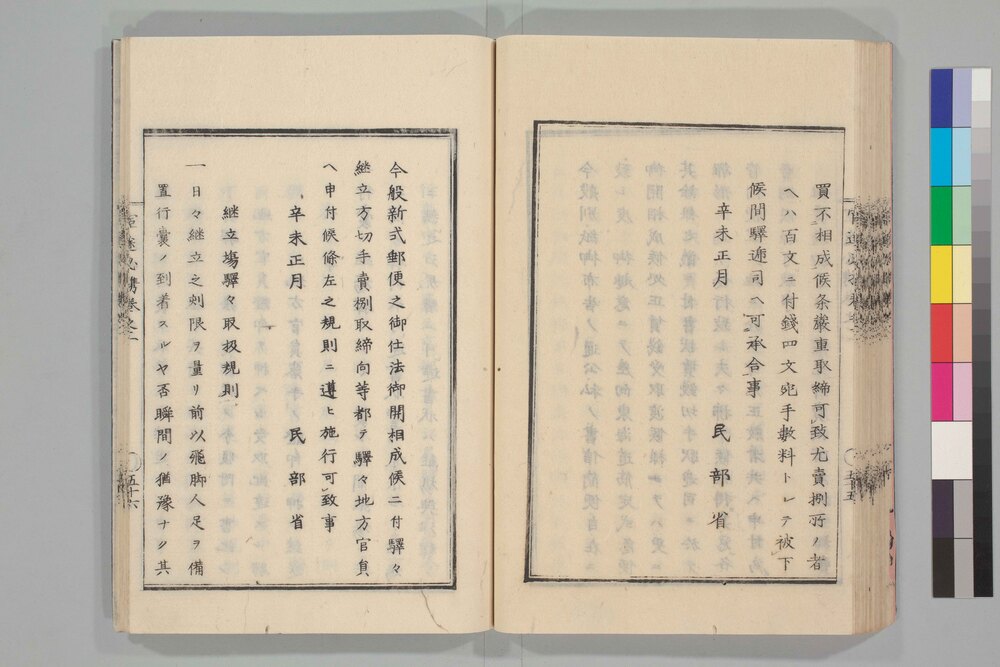 買不相成候条嚴重取締可致尤賣捌所ノ者
ヘハ百文ニ付錢四文宛手數料トシテ被下
候間驛逓司ヘ可承合事
辛未正月 民部省
今般新式郵便之御仕法御開相成候ニ付驛々
継立方切手賣捌取締向等都テ驛々地方官員
ヘ申付候條左之規則ニ遵ヒ施行可致事
辛未正月 民部省
継立塲驛々取扱規則
一日々継立之刻限ヲ量リ前以飛脚人足ヲ備
置行嚢ノ到着スルヤ否瞬間ノ猶豫ナク其
五十六